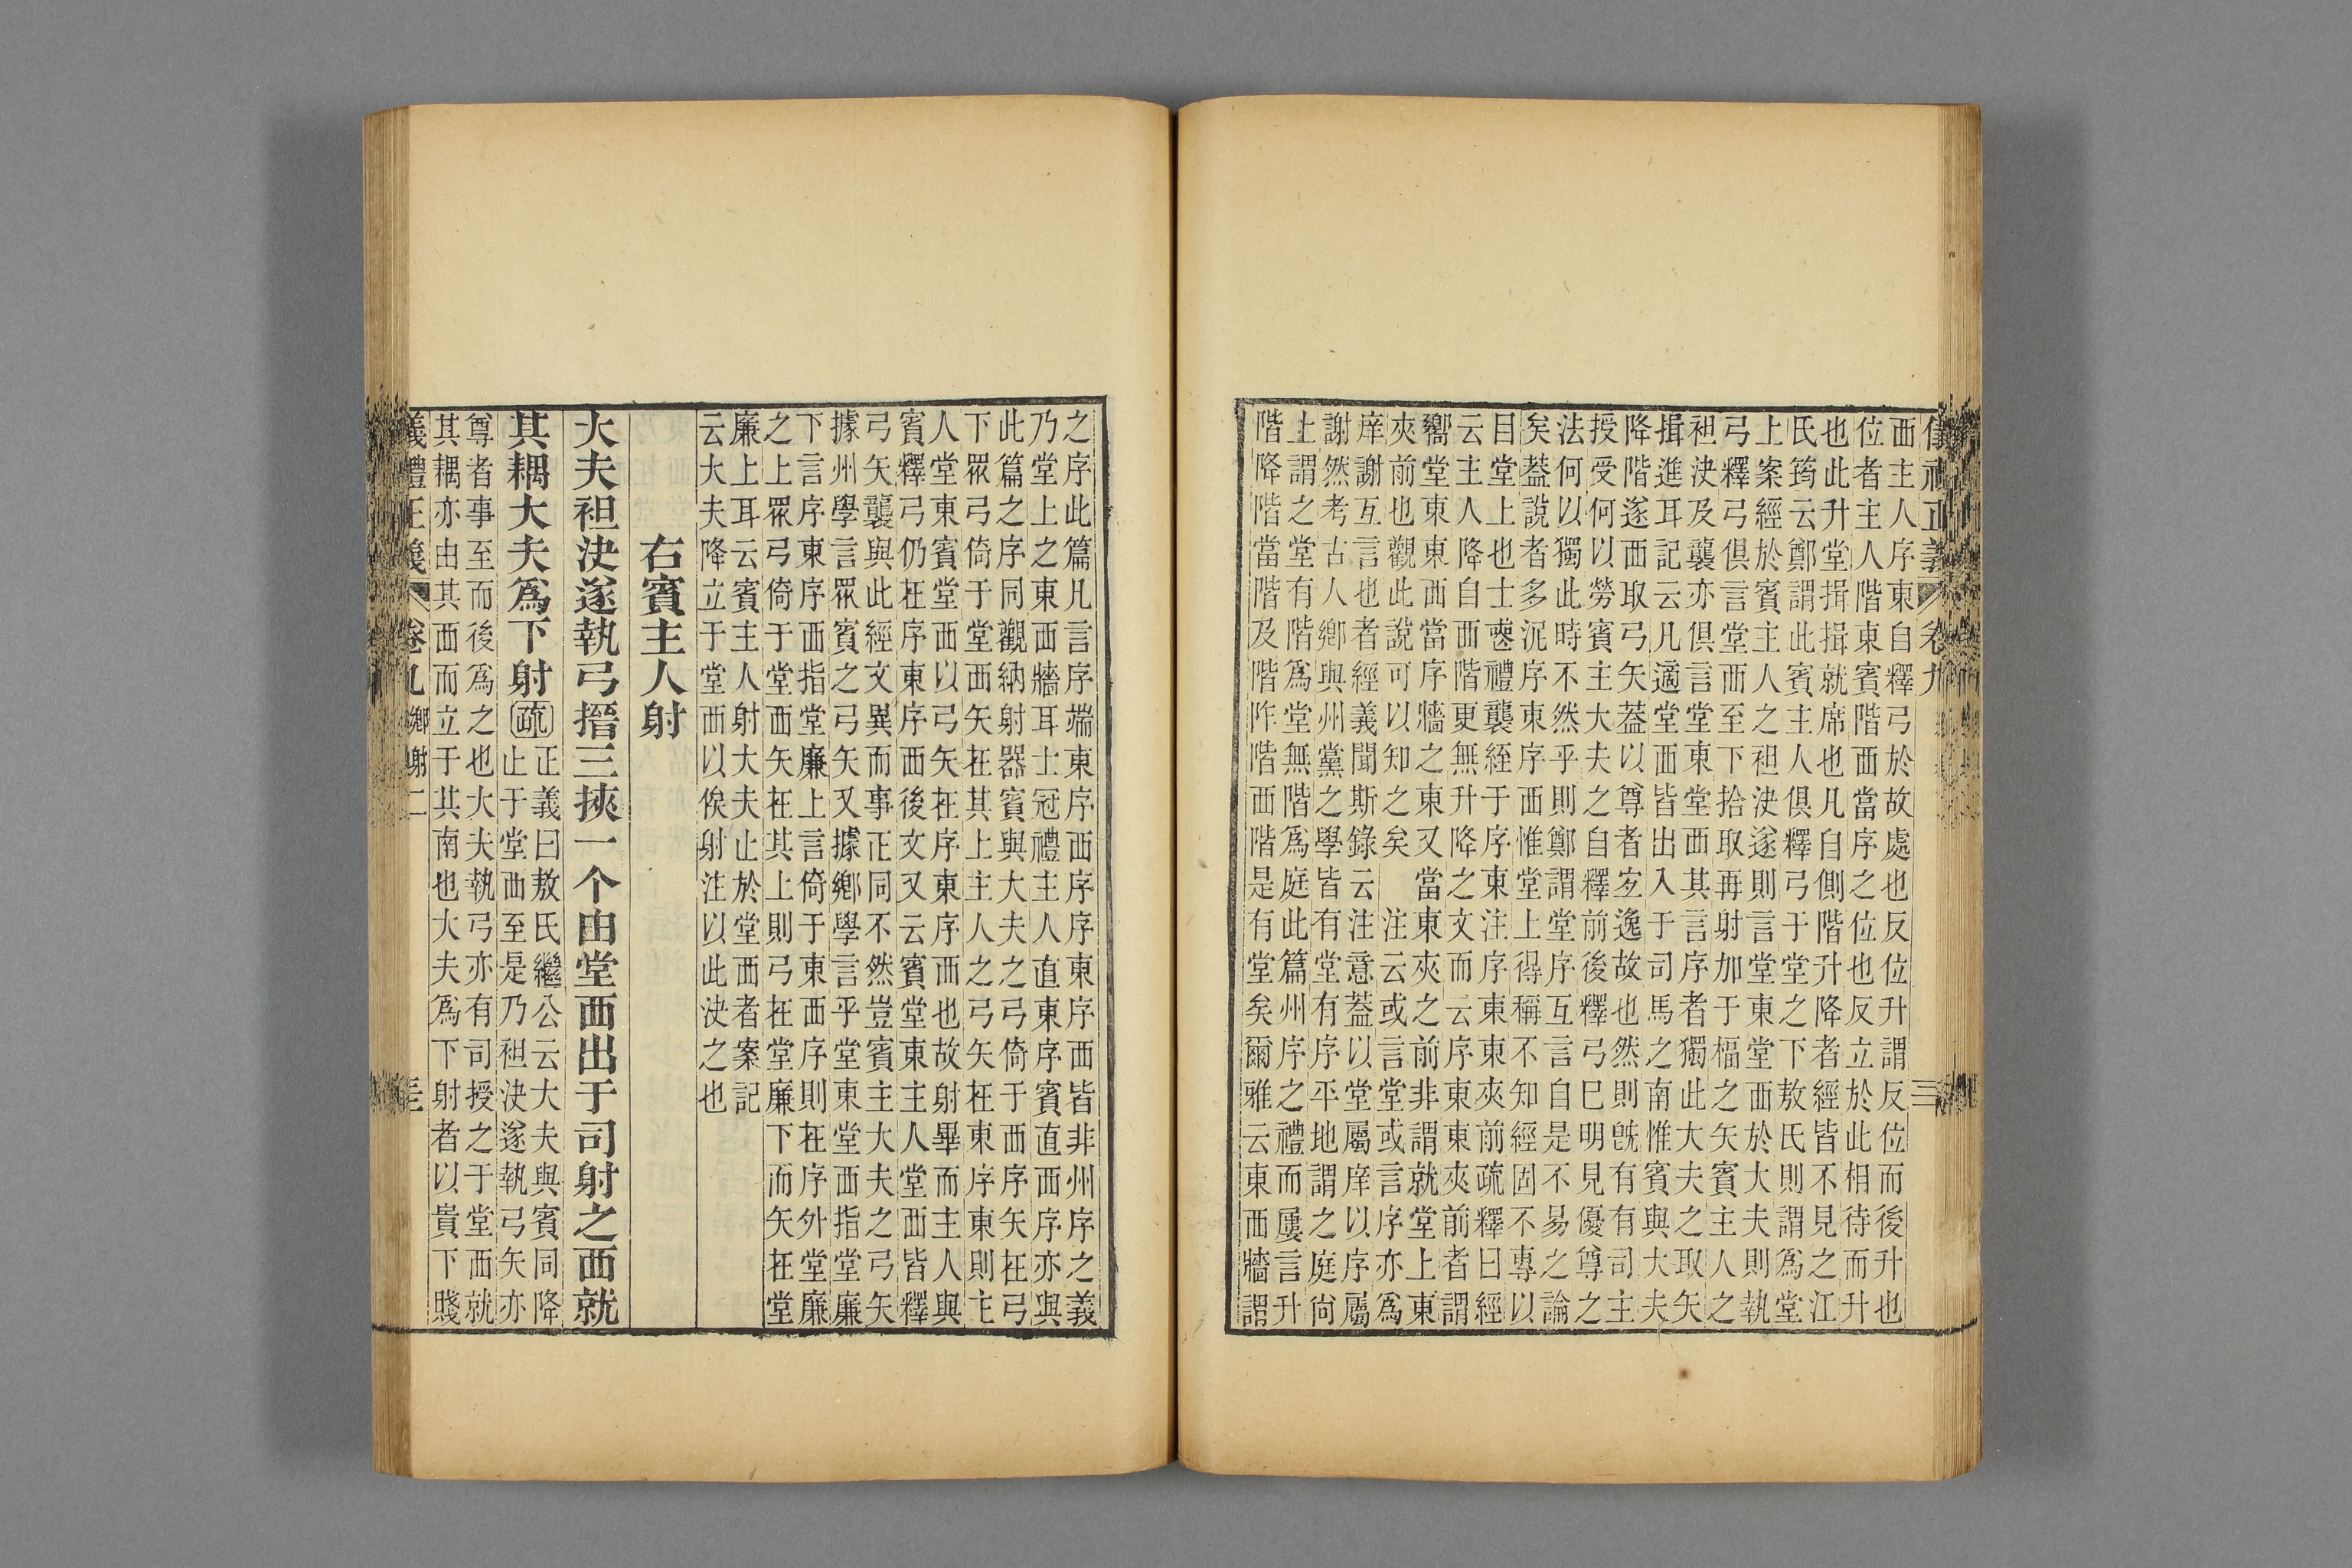 西主人序東自釋弓於故處也反位升謂反位而後升也
位者主人階東賓階西當序之位也反立於此相待而升
也此升堂揖揖就席也凡自側階升降者經皆不見之江
氏筠云鄭謂此賓主人俱釋弓于堂之下敖氏則謂爲堂
上案經於賓主人之袒決遂則言堂東堂西於大夫則執
弓釋弓俱言堂西至下拾取再射加于楅之矢賓主人之
袒決及襲亦俱言堂東堂西其言序者獨此大夫之取矢
揖進耳記云凡適堂西皆出入于司馬之南惟賓與大夫
降階遂西取弓矢葢以尊者宐逸故也然則旣有有司主
授受何以勞賓主大夫之自釋前後釋弓巳明見優尊之
法何以獨此時不然乎則鄭謂堂序互言自是不易之論
矣葢說者多泥序東序西惟堂上得稱不知經固不專以
目堂上也士䘮禮襲絰于序東注序東東夾前疏釋曰經
云主人降自西階更無升降之文而云序東東夾前者謂
嚮堂東東西當序牆之東又當東夾之前非謂就堂上東
夾前也觀此說可以知之矣　注云或言堂或言序亦爲
庠謝互言也者經義聞斯錄云注意葢以堂屬庠以序屬
謝然考古人鄉與州黨之學皆有堂有序平地謂之庭尙
上謂之堂有階爲堂無階爲庭此篇州序之禮而屢言升
階降階當階及階阼階西階是有堂矣爾雅云東西牆謂
之序此篇凡言序端東序西序序東序西皆非州序之義
乃堂上之東西牆耳士冠禮主人直東序賓直西序亦與
此篇之序同觀納射器賓與大夫之弓倚于西序矢在弓
下眾弓倚于堂西矢在其上主人之弓矢在東序東則主
人堂東賓堂西以弓矢在序東序西也故射畢而主人與
賓釋弓仍在序東序西後文又云賓堂東主人堂西皆釋
弓矢襲與此經文異而事正同不然豈賓主大夫之弓矢
據州學言眾賓之弓矢又據鄉學言乎堂東堂西指堂廉
下言序東序西指堂廉上言倚于東西序則在序外堂廉
之上眾弓倚于堂西矢在其上則弓在堂廉下而矢在堂
廉上耳云賓主人射大夫止於堂西者案記
云大夫降立于堂西以俟射注以此決之也
右賓主人射
大夫袒決遂執弓搢三挾一个由堂西出于司射之西就
其耦大夫爲下射疏
正義曰敖氏繼公云大夫與賓同降
止于堂西至是乃袒決遂執弓矢亦
尊者事至而後爲之也大夫執弓亦有司授之于堂西就
其耦亦由其西而立于其南也大夫爲下射者以貴下賤
儀禮正義 卷九 鄉射二